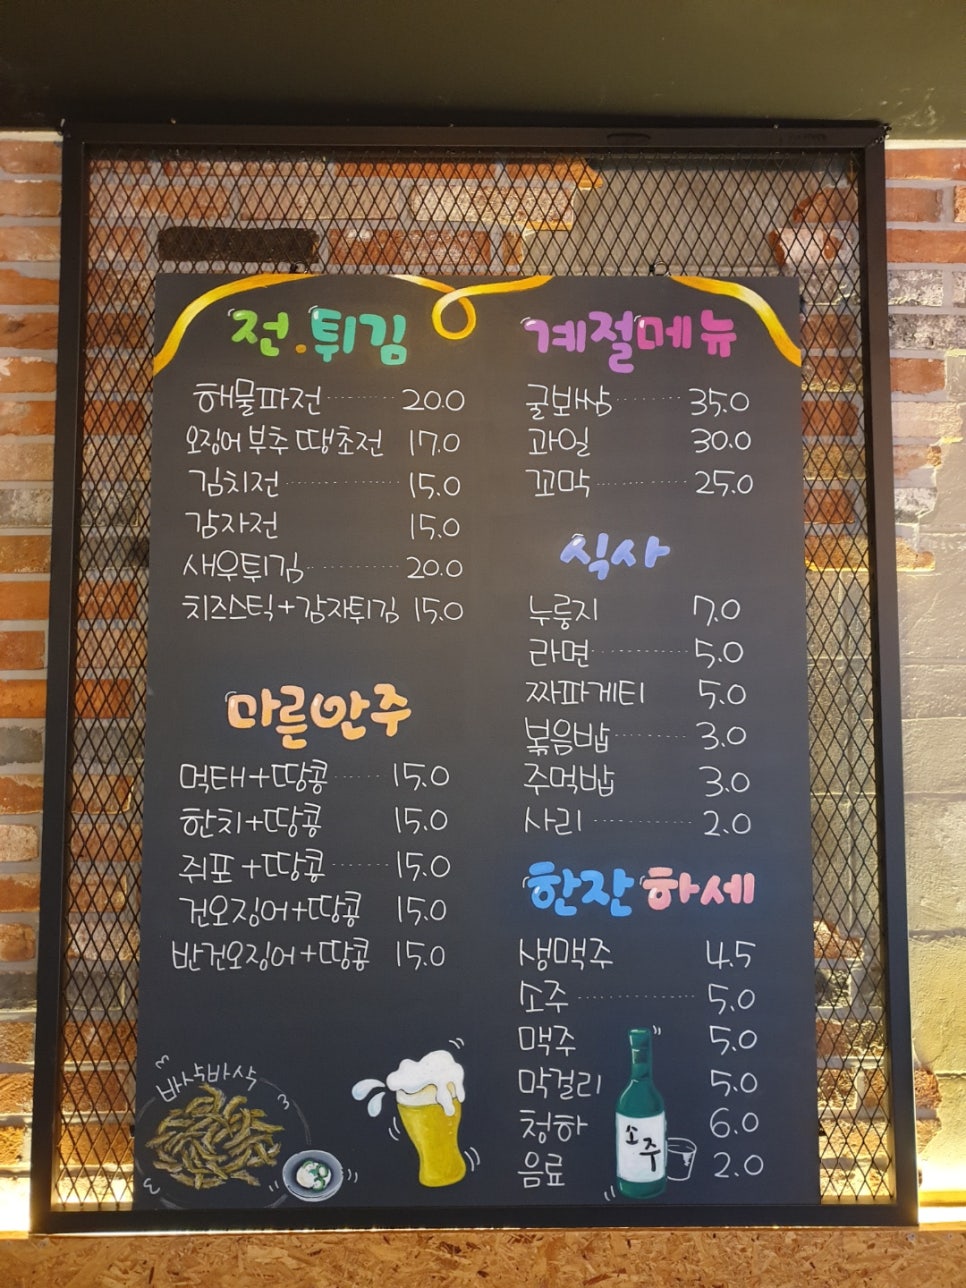 전.튀김
해물파전 20.0
오징어 부추 땡초전 17.0
김치전 15.0
감자전 15.0
새우튀김 20.0
치즈스틱+감자튀김 15.0
마른안주
먹태+땅콩 15.0
한치+땅콩 15.0
쥐포+땅콩 15.0
건오징어+땅콩 15.0
반건오징어+땅콩 15.0
바삭바삭
계절메뉴
굴보쌈 35.0
과일 30.0
꼬막 25.0
식사
누룽지 7.0
라면 5.0
짜파게티 5.0
볶음밥 3.0
주먹밥 3.0
사리 2.0
한잔 하세
생맥주 4.5
소주 5.0
맥주 5.0
막걸리 5.0
청하 6.0
음료 2.0
소주